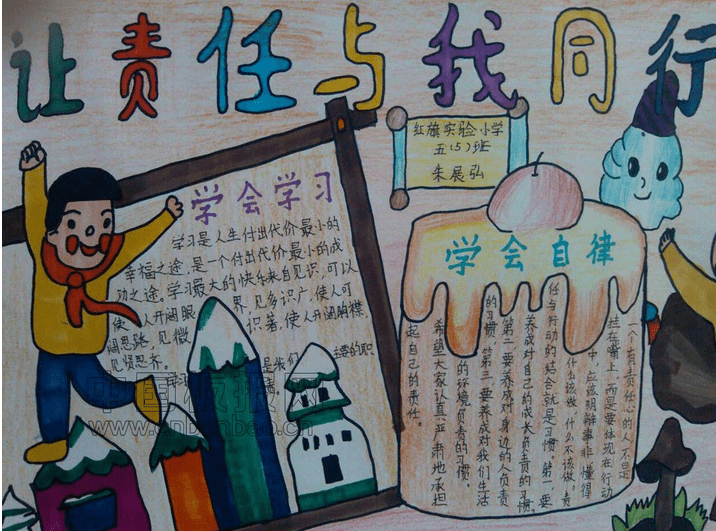 让责任与我同行
红旗实验小学
五(5)班
朱展弘
学会学习
学习是人生付出代价最小的
幸福之途，是一个付出代价最小的成
功之途。学习最大的快乐来自见识，可以
使人开阔眼界，见多识广，使人可
阔思路，见微识著，使人开阔胸襟，
见贤思齐。
是我们 主要的职
学会自律
一个有责任心的人不是
挂在嘴上，而是要体现在行动
中，应该明辨事非懂得
什么该做，什么不该做！责
任与行动的结合就是习惯。第一要
养成对自己的成长负主责的习惯，
第二要养成对身边的人负责
的习惯，第三要养成对我们生活
的环境负责的习惯。
希望大家认真严肃地承担
起自己的责任。
中国板报网
www.cnbanbao.cn